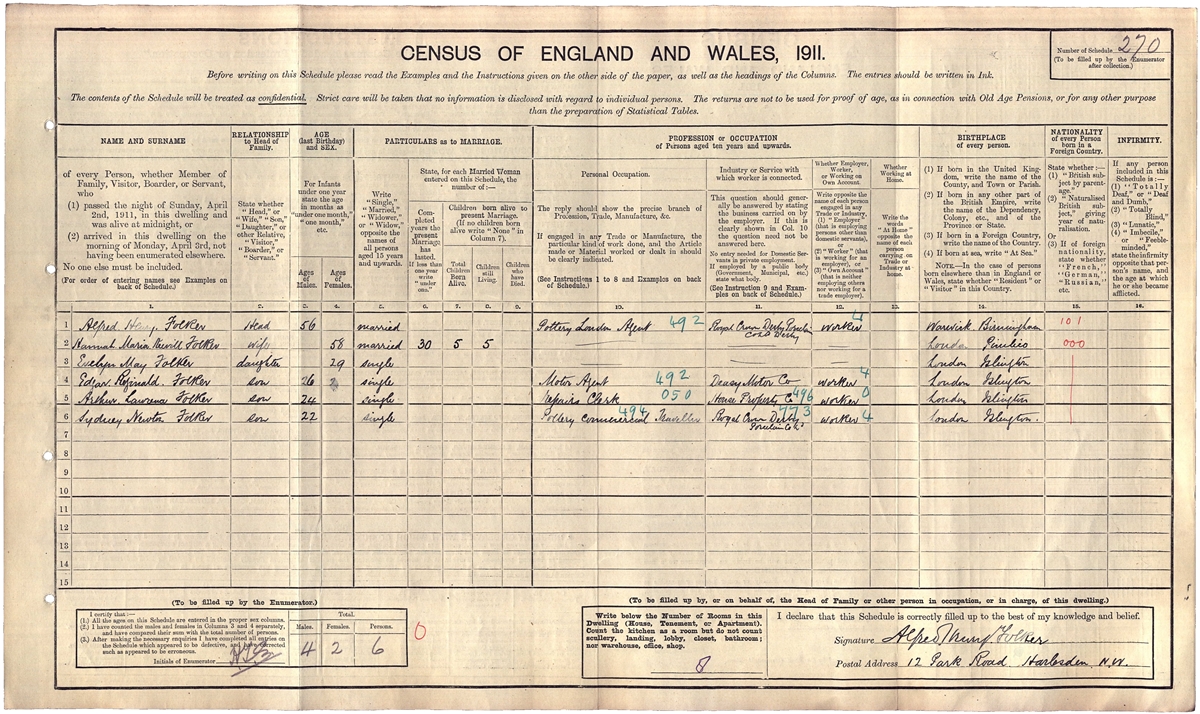 CENSUS OF ENGLAND AND WALES, 1911.
Number of Schedule 270
(To be filled up by the Enumerator after collection.)
Before writing on this Schedule please read the Examples and the Instructions given on the other side of the paper, as well as the headings of the Columns. The entries should be written in Ink.
The contents of the Schedule will be treated as confidential. Strict care will be taken that no information is disclosed with regard to individual persons. The returns are not to be used for proof of age, as in connection with Old Age Pensions, or for any other purpose
than the preparation of Statistical Tables.
NAME AND SURNAME
of every Person, whether Member of Family, Visitor, Boarder, or Servant, who
(1) passed the night of Sunday, April 2nd, 1911, in this dwelling and was alive at midnight, or
(2) arrived in this dwelling on the morning of Monday, April 3rd, not having been enumerated elsewhere.
No one else must be included.
(For order of entering names see Examples on back of Schedule.)
RELATIONSHIP to Head of Family.
State whether "Head," or "Wife," "Son," "Daughter," or other Relative, "Visitor," "Boarder," or "Servant."
AGE (last Birthday) and SEX.
For Infants under one year state the age in months as "under one month," "one month," etc.
Ages of Males.
Ages of Females.
PARTICULARS as to MARRIAGE.
Write "Single," "Married," "Widower," or "Widow," opposite the names of all persons aged 15 years and upwards.
State, for each Married Woman entered on this Schedule, the number of:—
Completed years the present Marriage has lasted. If less than one year write "under one."
Children born alive to present Marriage. (If no children born alive write "None" in Column 7).
Total Children Born Alive.
Children still Living.
Children who have Died.
PROFESSION or OCCUPATION of Persons aged ten years and upwards.
Personal Occupation.
The reply should show the precise branch of Profession, Trade, Manufacture, &c.
If engaged in any Trade or Manufacture, the particular kind of work done, and the Article made or Material worked or dealt in should be clearly indicated.
(See Instructions 1 to 8 and Examples on back of Schedule.)
Industry or Service with which worker is connected.
This question should generally be answered by stating the business carried on by the employer. If this is clearly shown in Col. 10 the question need not be answered here.
No entry needed for Domestic Servants in private employment. If employed by a public body (Government, Municipal, etc.) state what body.
(See Instruction 9 and Examples on back of Schedule.)
Whether Employer, Worker, or Working on Own Account.
Write opposite the name of each person engaged in any Trade or Industry, (1) "Employer" (that is employing persons other than domestic servants), or (2) "Worker" (that is working for an employer), or (3) "Own Account" (that is neither employing others nor working for a trade employer).
Whether Working at Home.
Write the words "At Home" opposite the name of each person carrying on Trade or Industry at home.
BIRTHPLACE of every person.
(1) If born in the United Kingdom, write the name of the County, and Town or Parish.
(2) If born in any other part of the British Empire, write the name of the Dependency, Colony, etc., and of the Province or State.
(3) If born in a Foreign Country, write the name of the Country.
(4) If born at sea, write "At Sea."
NOTE.—In the case of persons born elsewhere than in England or Wales, state whether "Resident" or "Visitor" in this Country.
NATIONALITY of every Person born in a Foreign Country.
State whether:— (1) "British subject by parentage." (2) "Naturalised British subject," giving year of naturalisation. Or (3) If of foreign nationality, state whether "French," "German," "Russian," etc.
INFIRMITY.
If any person included in this Schedule is:— (1) "Totally Deaf," or "Deaf and Dumb," (2) "Totally Blind," (3) "Lunatic," (4) "Imbecile," or "Feeble-minded," state the infirmity opposite that person's name, and the age at which he or she became afflicted.
1. 2. 3. 4. 5. 6. 7. 8. 9. 10. 11. 12. 13. 14. 15. 16.
1 Alfred Henry Folker Head 56 married Pottery London Agent 492 Royal Crown Derby Porcelain Co Ld Derby worker 4 Warwick Birmingham 101
2 Hannah Maria Nevill Folker wife 58 married 30 5 5 London Pimlico 000
3 Evelyn May Folker daughter 29 single London Islington
4 Edgar Reginald. Folker son 26 single Motor Agent 492 Deasy Motor Co worker 4 London Islington
5 Arthur Lawrence Folker son 24 single Repairs Clerk 050 House Property Co 496 worker 0 London Islington
6 Sydney Newton Folker son 22 single Pottery Commercial Traveller 494 Royal Crown Derby Porcelain Co Ld 773 worker 4 London Islington.
7
8
9
10
11
12
13
14
15
(To be filled up by the Enumerator.)
I certify that:—
(1.) All the ages on this Schedule are entered in the proper sex columns.
(2.) I have counted the males and females in Columns 3 and 4 separately, and have compared their sum with the total number of persons.
(3.) After making the necessary enquiries I have completed all entries on the Schedule which appeared to be defective, and have corrected such as appeared to be erroneous.
Initials of Enumerator
Total.
Males. Females. Persons.
4 2 6
0
(To be filled up by, or on behalf of, the Head of Family or other person in occupation, or in charge, of this dwelling.)
Write below the Number of Rooms in this Dwelling (House, Tenement, or Apartment). Count the kitchen as a room but do not count scullery, landing, lobby, closet, bathroom; nor warehouse, office, shop.
8
I declare that this Schedule is correctly filled up to the best of my knowledge and belief.
Signature Alfred Henry Folker
Postal Address 12 Park Road Harlesden N.W.